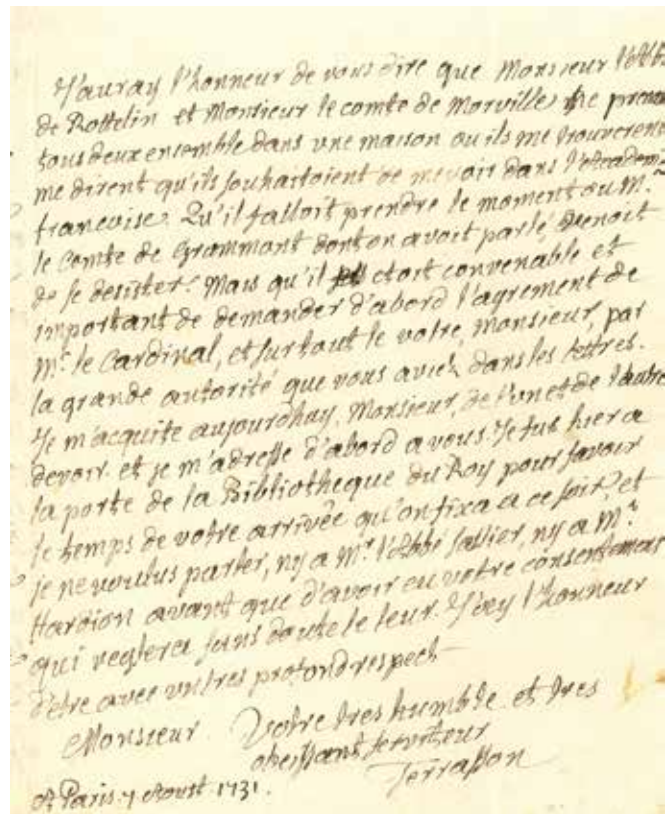 J'auray l'honneur de vous dire que Monsieur l'Abb
de Rottelin et Monsieur le comte de Morville me prena
tous deux ensemble dans une maison ou ils me trouverent
me dirent qu'ils souhaitoient de me voir dans l'Academi
francoise. Qu'il falloit prendre le moment ou M.r
le Comte de Grammont dont on avoit parlé, venoit
de se desister. Mais qu'il etoit convenable et
important de demander d'abord l'agrement de
M.r le Cardinal, et surtout le votre, Monsieur, par
la grande autorité que vous aviez dans les lettres.
Je m'acquite aujourdhuy, Monsieur, de l'un et de l'autre
devoir. et je m'adresse d'abord a vous. Je fus hier a
la porte de la Bibliotheque du Roy pour savoir
le temps de votre arrivée qu'on fixa a ce soir, et
je ne voulus parler, ny a M.r l'Abbé Sallier, ny a M.r
Hardion avant que d'avoir eu votre consentement
qui reglera sans doute le leur. J'ay l'honneur
d'etre avec un tres profond respect
Monsieur. Votre tres humble et tres
obeissant serviteur
Terrasson
A Paris 7 Aoust 1731.